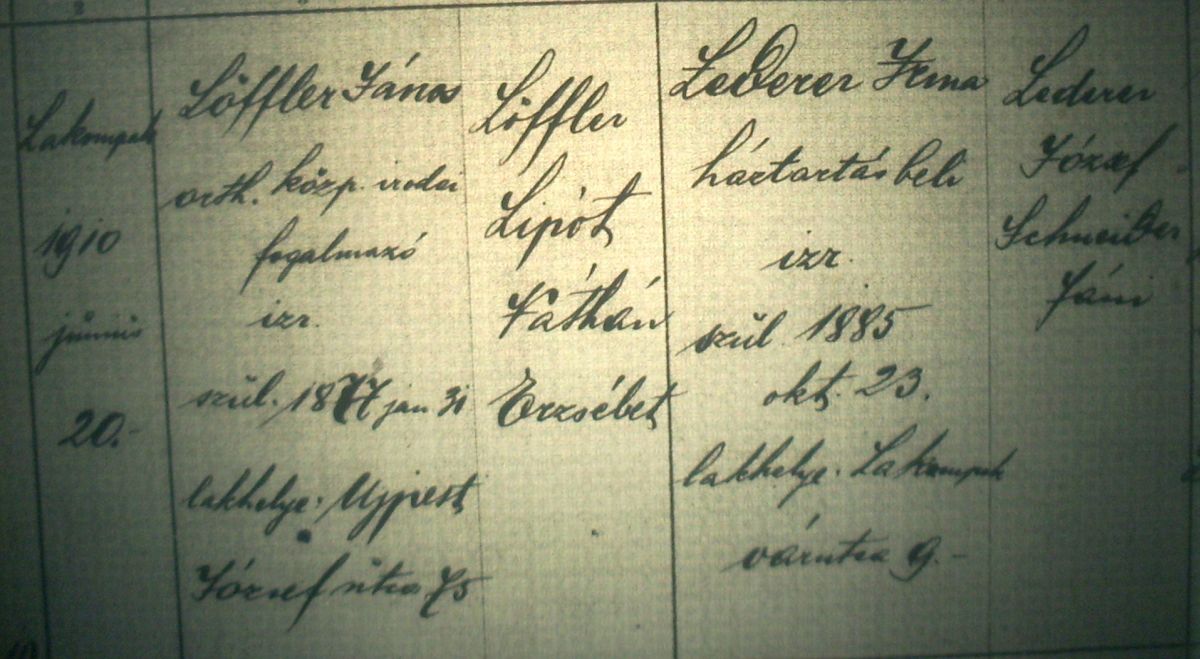 Lakompak
1910
június
20.-
Löffler János
orth. közp. irodai
fogalmazó
izr.
szül. 1877 jan 31
lakhelye: Ujpest
József útca 75
Löffler
Lipót
Náthán
Erzsébet
Lederer Irma
háztartásbeli
izr.
szül. 1885
okt. 23.
lakhelye: Lakompak
várutca 9.-
Lederer
József
Schneider
Fáni